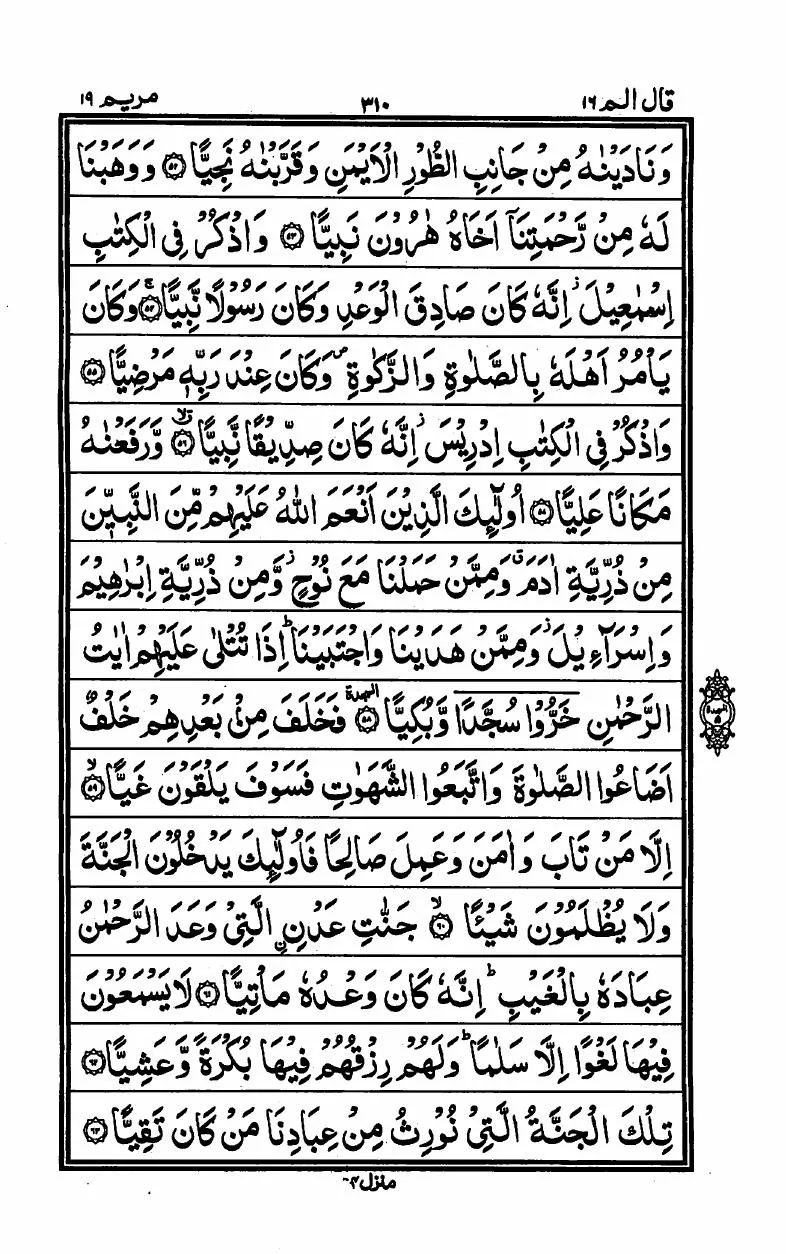 قال الم ١٦ ٣١٠ مريم ١٩
وَنَادَيْنٰهُ مِنْ جَانِبِ الطُّوْرِ الْاَيْمَنِ وَقَرَّبْنٰهُ نَجِيًّا ۝٥٢ وَوَهَبْنَا
لَهٗ مِنْ رَّحْمَتِنَاۤ اَخَاهُ هٰرُوْنَ نَبِيًّا ۝٥٣ وَاذْكُرْ فِى الْكِتٰبِ
اِسْمٰعِيْلَ ؗ اِنَّهٗ كَانَ صَادِقَ الْوَعْدِ وَكَانَ رَسُوْلًا نَّبِيًّا ۝٥٤ۚ وَكَانَ
يَاْمُرُ اَهْلَهٗ بِالصَّلٰوةِ وَالزَّكٰوةِ ۪ وَكَانَ عِنْدَ رَبِّهٖ مَرْضِيًّا ۝٥٥
وَاذْكُرْ فِى الْكِتٰبِ اِدْرِيْسَ ؗ اِنَّهٗ كَانَ صِدِّيْقًا نَّبِيًّا ۝٥٦ۗۙ وَّرَفَعْنٰهُ
مَكَانًا عَلِيًّا ۝٥٧ اُولٰٓئِكَ الَّذِيْنَ اَنْعَمَ اللّٰهُ عَلَيْهِمْ مِّنَ النَّبِيّٖنَ
مِنْ ذُرِّيَّةِ اٰدَمَ ۗ وَمِمَّنْ حَمَلْنَا مَعَ نُوْحٍ ؗ وَّمِنْ ذُرِّيَّةِ اِبْرٰهِيْمَ
وَاِسْرَآءِيْلَ ؗ وَمِمَّنْ هَدَيْنَا وَاجْتَبَيْنَا ؕ اِذَا تُتْلٰى عَلَيْهِمْ اٰيٰتُ
الرَّحْمٰنِ خَرُّوْا سُجَّدًا وَّبُكِيًّا ۝٥٨ السجدة فَخَلَفَ مِنْۢ بَعْدِهِمْ خَلْفٌ
السجدة ٥
اَضَاعُوا الصَّلٰوةَ وَاتَّبَعُوا الشَّهَوٰتِ فَسَوْفَ يَلْقَوْنَ غَيًّا ۝٥٩ۙ
اِلَّا مَنْ تَابَ وَاٰمَنَ وَعَمِلَ صَالِحًا فَاُولٰٓئِكَ يَدْخُلُوْنَ الْجَنَّةَ
وَلَا يُظْلَمُوْنَ شَيْئًا ۝٦٠ۙ جَنّٰتِ عَدْنِ ࣙالَّتِىْ وَعَدَ الرَّحْمٰنُ
عِبَادَهٗ بِالْغَيْبِ ؕ اِنَّهٗ كَانَ وَعْدُهٗ مَاْتِيًّا ۝٦١ لَا يَسْمَعُوْنَ
فِيْهَا لَغْوًا اِلَّا سَلٰمًا ؕ وَلَهُمْ رِزْقُهُمْ فِيْهَا بُكْرَةً وَّعَشِيًّا ۝٦٢
تِلْكَ الْجَنَّةُ الَّتِىْ نُوْرِثُ مِنْ عِبَادِنَا مَنْ كَانَ تَقِيًّا ۝٦٣
منزل ٤